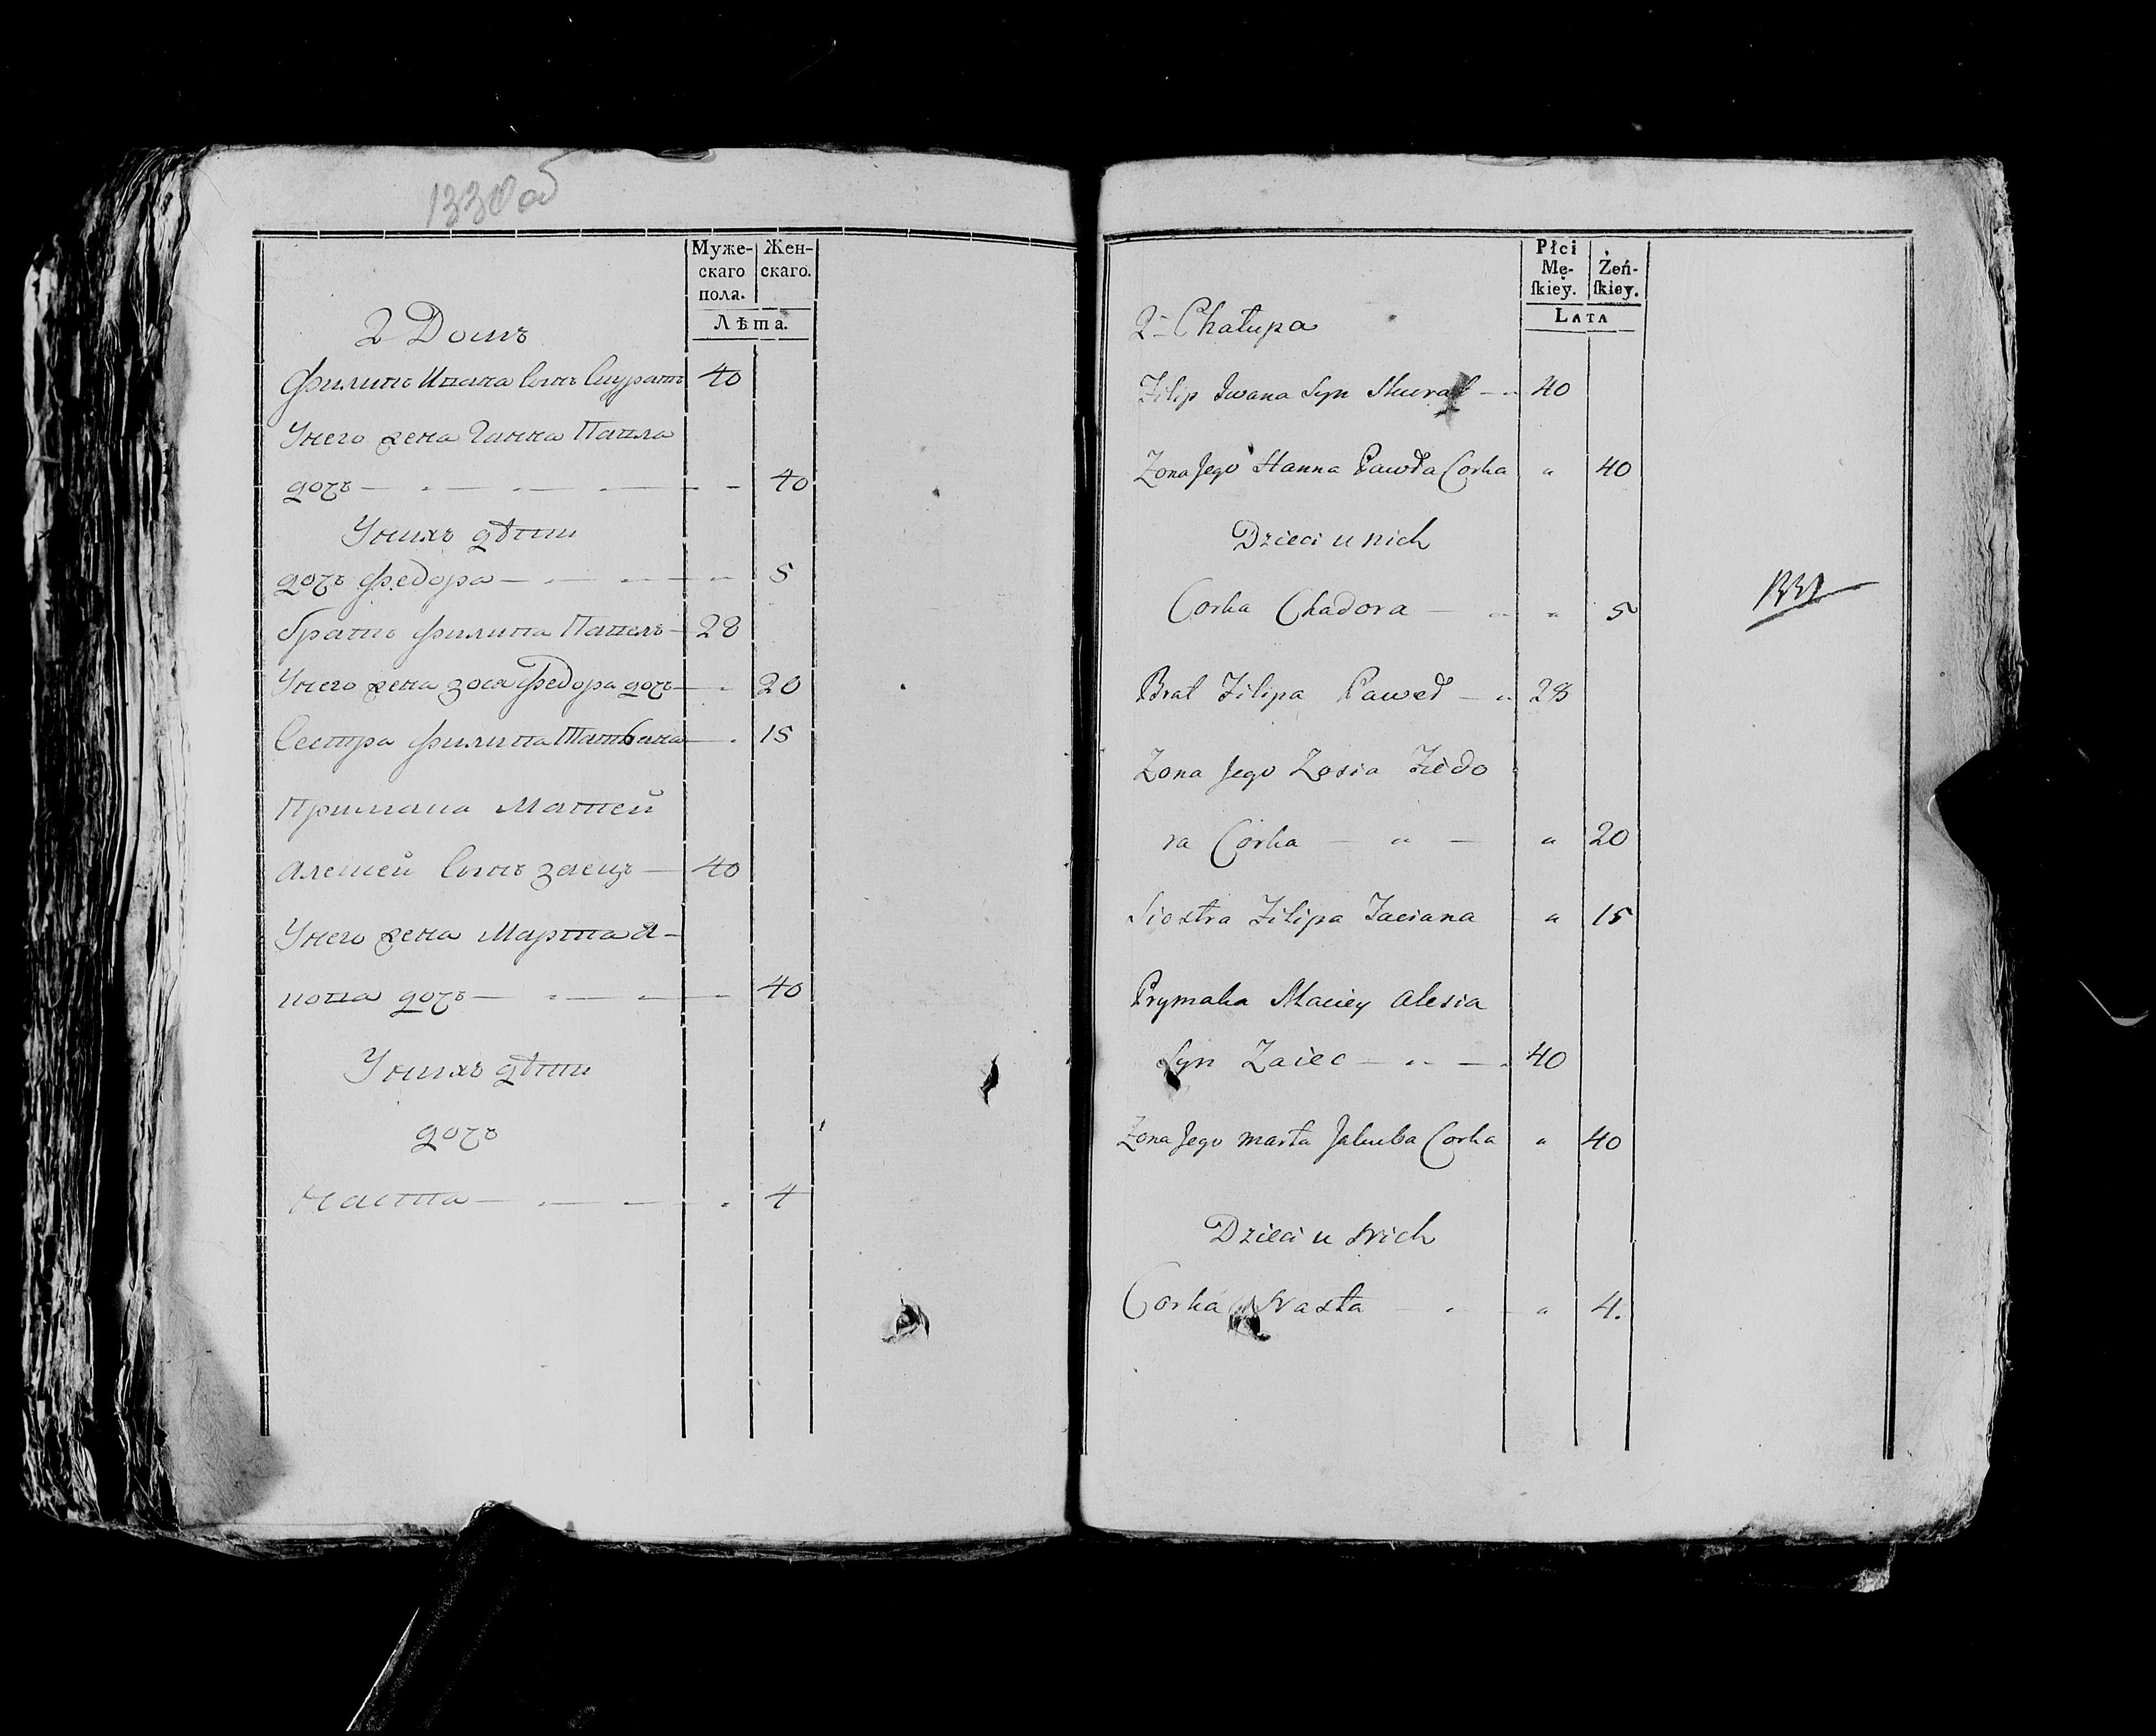 1330об
Муже-
скаго
пола.
Жен-
скаго.
Лѣта.
2 Домъ
Филипъ Ивана Сынъ Скуратъ 40
Унего жена Ганна Павла
дочь — 40
Унихъ дѣти
дочь Федора — 5
братъ Филипа Павелъ — 28
Унего жена Зося Федора дочь — 20
Сестра Филипа Татьяна — 15
Примака Матей
Алешей Сынъ Заецъ — 40
Унего жена Марта Я-
кова дочь — 40
Унихъ дѣти
дочь
Наста — 4
Płci
Mę-
skiey.
Żeń-
skiey.
Lata
2 Chałupa
Filip Iwana Syn Skurat — 40
Zona Jego Hanna Pawła Corka " 40
Dzieci u nich
Corka Chadora — " 5
Brat Filipa Paweł — 28
Zona Jego Zosia Fiedo
ra Corka — " — " 20
Siostra Filipa Taciana " 15
Prymaka Maciey Alesia
Syn Zaiec — 40
Zona Jego Marta Jakuba Corka " 40
Dzieci u Nich
Corka Nasta " 4.
1331